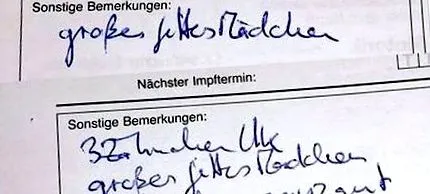 Sonstige Bemerkungen:
großes fettes Mädchen
Nächster Impftermin:
Sonstige Bemerkungen:
3 Zitzchen Uk
großes fettes Mädchen